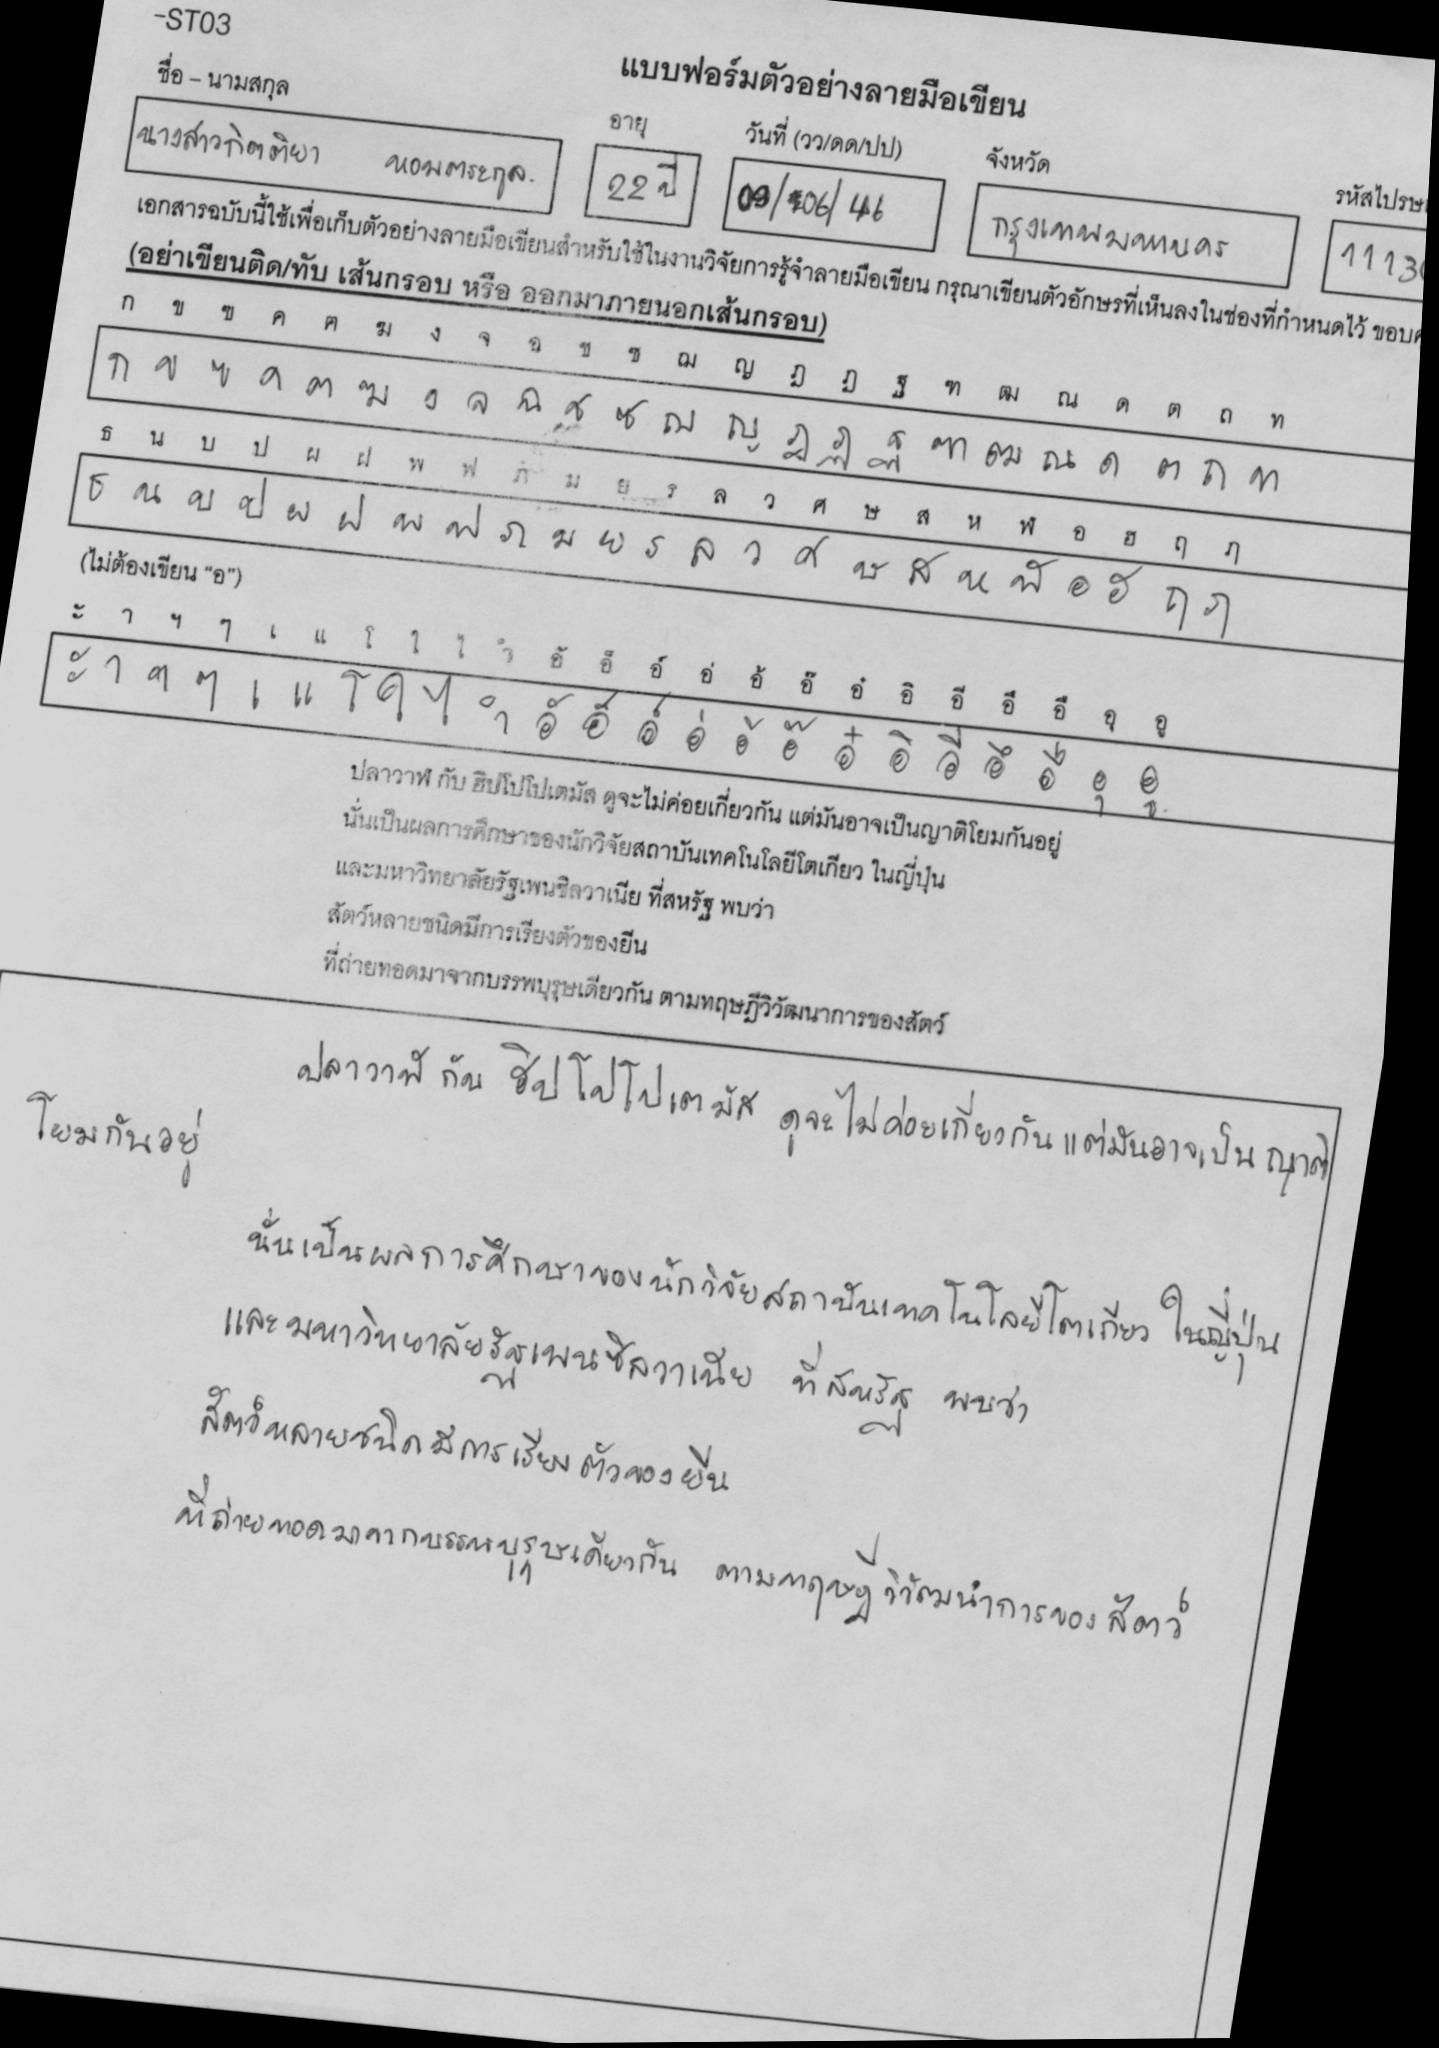 -ST03
แบบฟอร์มตัวอย่างลายมือเขียน
ชื่อ – นามสกุล อายุ วันที่ (วว/ดด/ปป) จังหวัด
นางสาวกิตติยา หอมตระกูล. 22 ปี 09/06/46 กรุงเทพมหานคร
เอกสารฉบับนี้ใช้เพื่อเก็บตัวอย่างลายมือเขียนสำหรับใช้ในงานวิจัยการรู้จำลายมือเขียน กรุณาเขียนตัวอักษรที่เห็นลงในช่องที่กำหนดไว้
(อย่าเขียนติด/ทับ เส้นกรอบ หรือ ออกมาภายนอกเส้นกรอบ)
ก ข ฃ ค ฅ ฆ ง จ ฉ ช ซ ฌ ญ ฎ ฏ ฐ ฑ ฒ ณ ด ต ถ ท
ก ข ฃ ค ฅ ฆ ง จ ฉ ช ซ ฌ ญ ฎ ฏ ฐ ฑ ฒ ณ ด ต ถ ท
ธ น บ ป ผ ฝ พ ฟ ภ ม ย ร ล ว ศ ษ ส ห ฬ อ ฮ ฤ ภ
ธ น บ ป ผ ฝ พ ฟ ภ ม ย ร ล ว ศ ษ ส ห ฬ อ ฮ ฤ ภ
(ไม่ต้องเขียน "อ")
ะ า ฯ ๆ เ แ โ ใ ไ ำ อั อ็ อ์ อ่ อ้ อ๊ อ๋ อิ อี อึ อื อุ อู
ะ า ฯ ๆ เ แ โ ใ ไ ำ อั อ็ อ์ อ่ อ้ อ๊ อ๋ อิ อี อึ อื อุ อู
ปลาวาฬ กับ ฮิปโปโปเตมัส ดูจะไม่ค่อยเกี่ยวกัน แต่มันอาจเป็นญาติโยมกันอยู่
นั่นเป็นผลการศึกษาของนักวิจัยสถาบันเทคโนโลยีโตเกียว ในญี่ปุ่น
และมหาวิทยาลัยรัฐเพนซิลวาเนีย ที่สหรัฐ พบว่า
สัตว์หลายชนิดมีการเรียงตัวของยีน
ที่ถ่ายทอดมาจากบรรพบุรุษเดียวกัน ตามทฤษฎีวิวัฒนาการของสัตว์
ปลาวาฬ กับ ฮิปโปโปเตมัส ดูจะไม่ค่อยเกี่ยวกัน แต่มันอาจเป็น ญาติ
โยมกันอยู่
นั่นเป็นผลการศึกษาของนักวิจัยสถาบันเทคโนโลยีโตเกียว ในญี่ปุ่น
และมหาวิทยาลัยรัฐเพนซิลวาเนีย ที่สหรัฐ พบว่า
สัตว์หลายชนิดมีการเรียงตัวของยีน
ที่ถ่ายทอดมาจากบรรพบุรุษเดียวกัน ตามทฤษฎีวิวัฒนาการของสัตว์